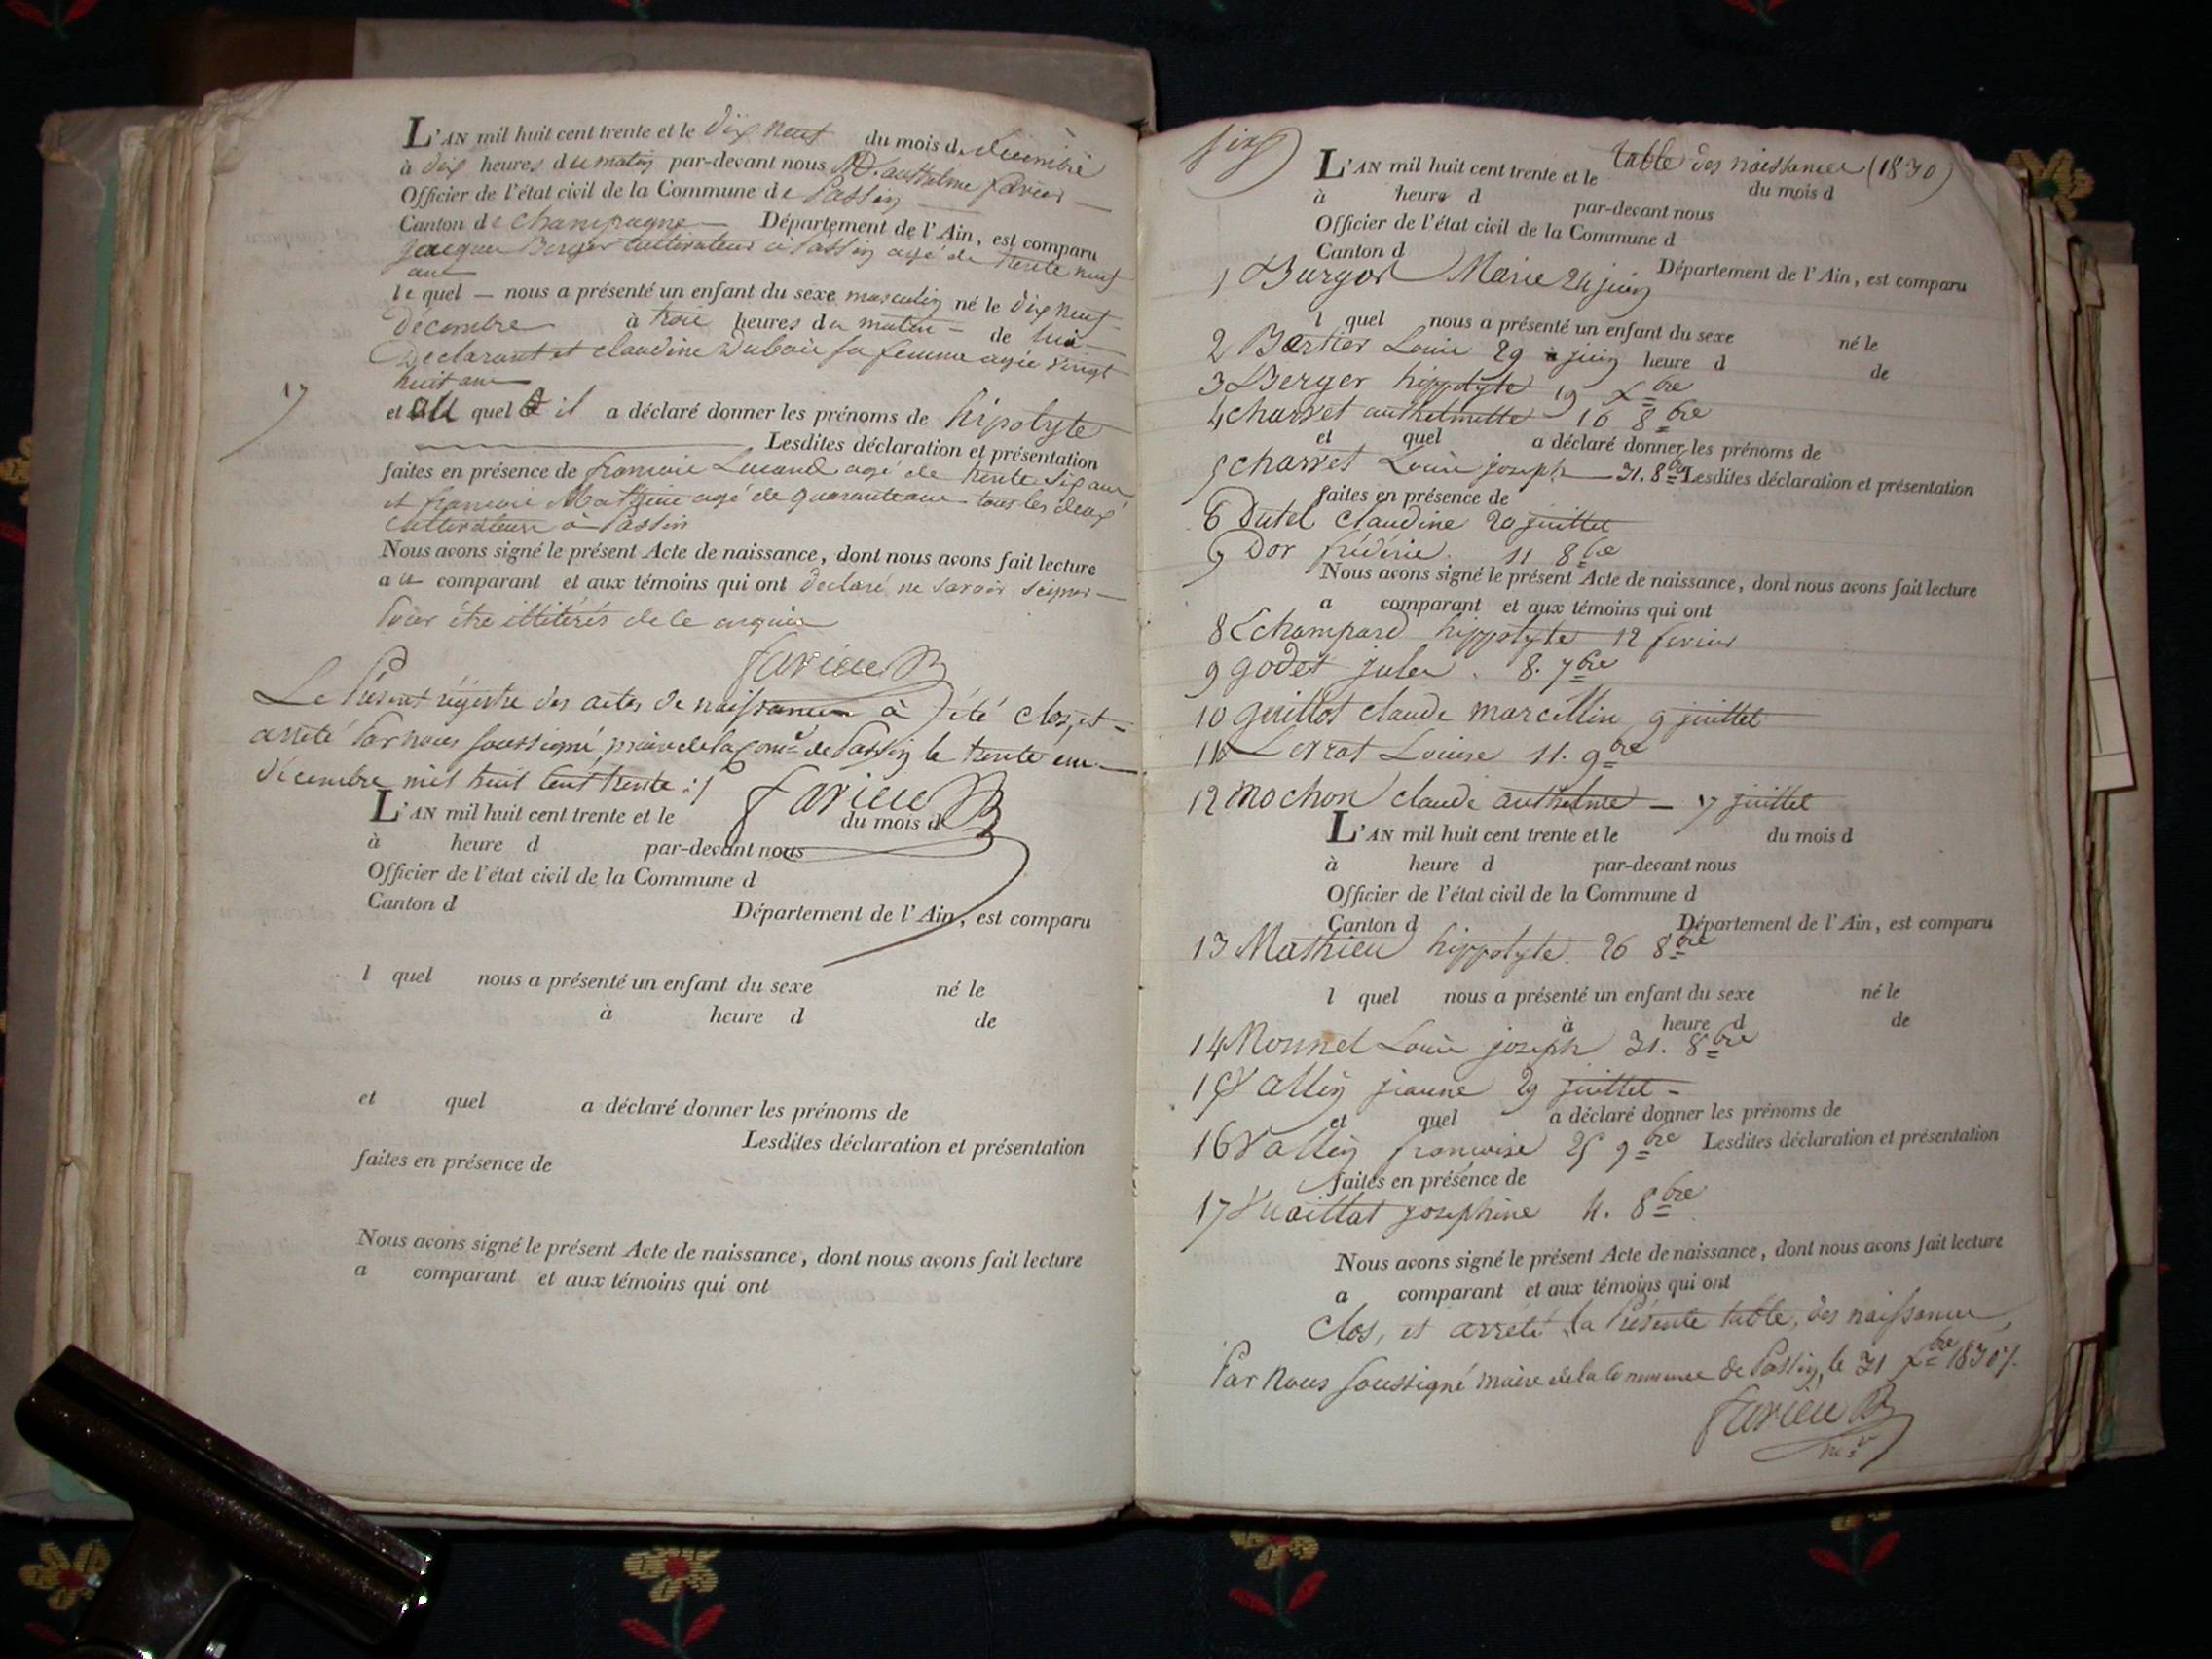 L'AN mil huit cent trente et le dix neuf du mois de decembre
à dix heures du matin par-devant nous anthelme favier
Officier de l'état civil de la Commune de Passin
Canton de champagne Département de l'Ain, est comparu
jacques Berger cultivateur à Passin agé de trente neuf
ans
lequel nous a présenté un enfant du sexe masculin né le dix neuf
décembre à trois heures du matin de lui
Declarant et claudine Dubois sa femme agée vingt
huit ans
17
et au quel il a déclaré donner les prénoms de hipolyte
Lesdites déclaration et présentation
faites en présence de francois agé de trente six ans
et francois agé de quarante ans tous les deux
cultivateurs à Passin
Nous avons signé le présent Acte de naissance, dont nous avons fait lecture
au comparant et aux témoins qui ont declaré ne savoir
Pour être illitérés de ce
favier
Le Présent régistre des actes de naissances à été clos, et
arreté Par nous soussigné, maire de la Com.e de Passin le trente un
décembre mil huit cent trente
favier
L'AN mil huit cent trente et le du mois d
à heure d par-devant nous
Officier de l'état civil de la Commune d
Canton d
Département de l'Ain, est comparu
l quel nous a présenté un enfant du sexe né le
à heure d de
et quel a déclaré donner les prénoms de
Lesdites déclaration et présentation
faites en présence de
Nous avons signé le présent Acte de naissance, dont nous avons fait lecture
a comparant et aux témoins qui ont
six
table des naissances (1830)
L'AN mil huit cent trente et le du mois d
à heure d par-devant nous
Officier de l'état civil de la Commune d
Canton d
Département de l'Ain, est comparu
1 Burgod Marie 24 juin
l quel nous a présenté un enfant du sexe né le
2 Bertier Louis 29 juin
à heure d de
3 Berger hippolyte 19 Xbre
4 charvet anthelmette 16 8bre
et quel a déclaré donner les prénoms de
5 charvet Louis joseph 31. 8bre
Lesdites déclaration et présentation
faites en présence de
6 Dutel claudine 20 juillet
7 Dor frédéric. 11 8bre
Nous avons signé le présent Acte de naissance, dont nous avons fait lecture
a comparant et aux témoins qui ont
8 Echampard hippolyte 12 fevrier
9 godet jules. 8. 7bre
10 guillot claude marcellin 9 juillet
11 Levrat Louise 11. 9bre
12 mochon claude anthelme 7 juillet
L'AN mil huit cent trente et le du mois d
à heure d par-devant nous
Officier de l'état civil de la Commune d
Canton d
Département de l'Ain, est comparu
13 Mathieu hippolyte. 26 8bre
l quel nous a présenté un enfant du sexe né le
à heure d de
14 Monnet Louis joseph 31. 8bre
15 Vallin jeanne 29 juillet
et quel a déclaré donner les prénoms de
16 Vallin francoise 25 9bre
Lesdites déclaration et présentation
faites en présence de
17 Vuaillat josephine 4. 8bre
Nous avons signé le présent Acte de naissance, dont nous avons fait lecture
a comparant et aux témoins qui ont
Clos, et arrété la Présente table, des naissances,
Par Nous soussigné maire de la commune de Passin, le 31 Xbre 1830
favier